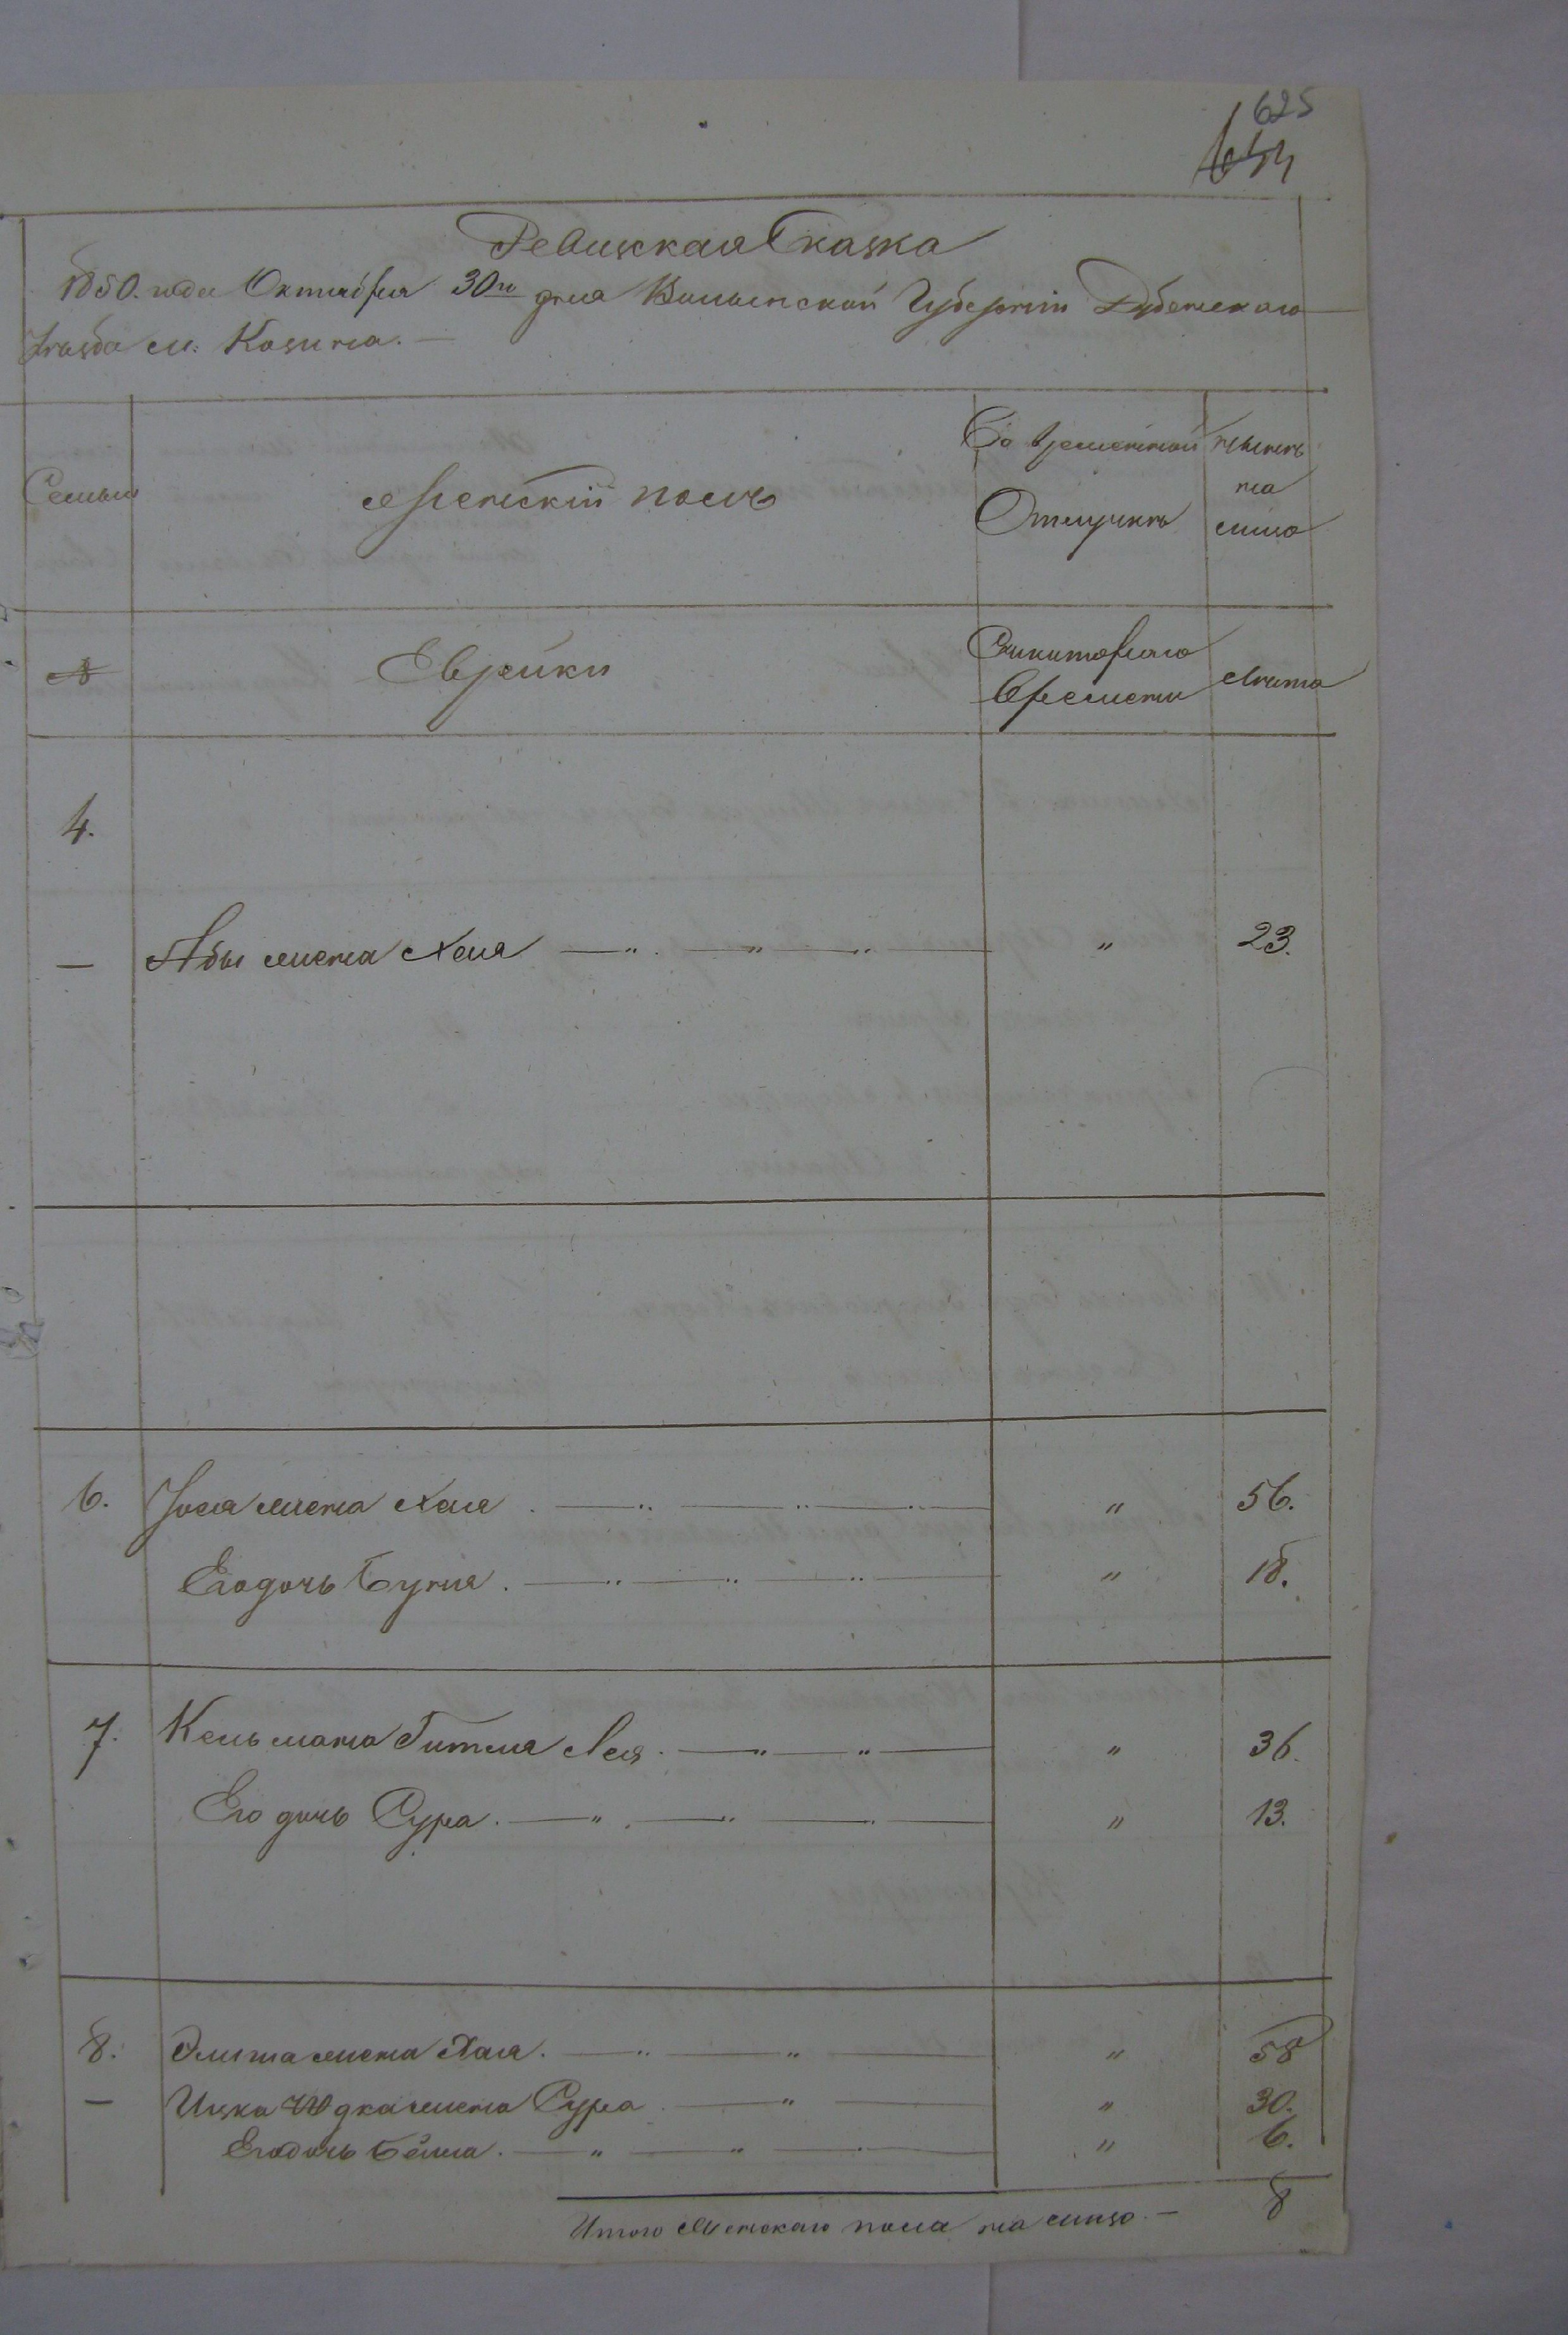 625
654
Ревизская Сказка
1850. года Октября 30го дня Волынской Губернии Дубенскаго
уезда м: Козина. —
Семьи
Женский полъ
Во временной Отлучкѣ
нынѣ на лицо
№
Еврейки
Съ котораго времени
Лѣта
4.
— Абы жена Хая — " — " — " — " 23.
6. жена Хая . — " — " — " — " 56.
Его дочь Буня . — " — " — " — " 18.
7. Кельмана Гитля Лея . — " — " — " 36.
Его дочь Сура . — " . — " — " — " 13.
8. жена Хая . — " — " — " 58
— Ицка жена Сура . — " — " 30.
Его дочь Бейла . — " — " — " — " 6.
Итого женскаго пола на лицо — 8